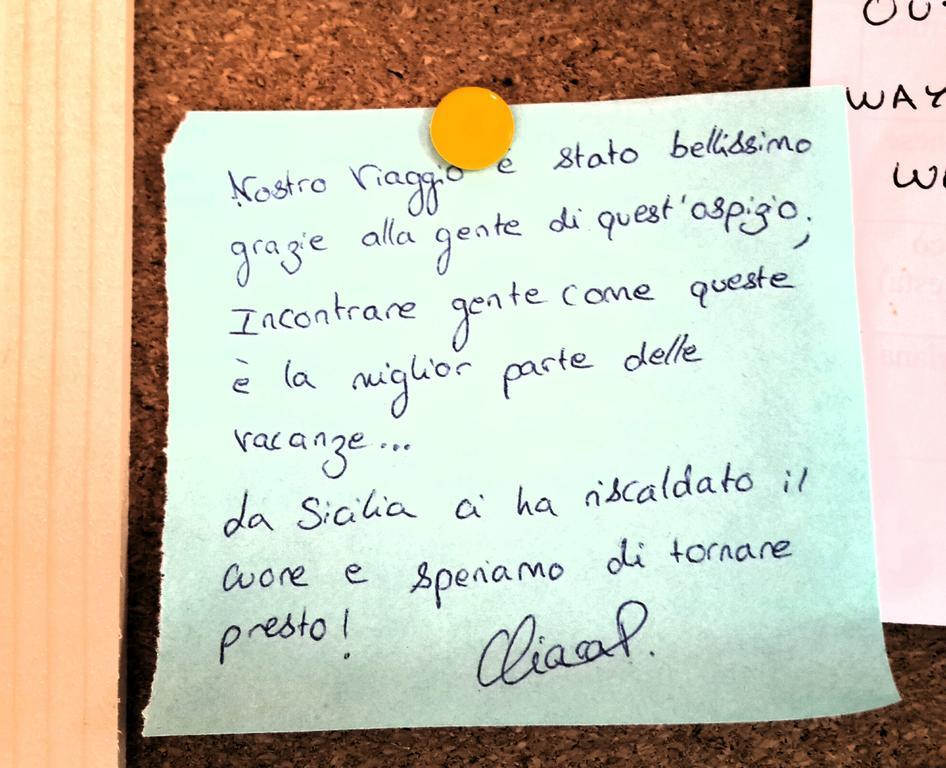 Nostro Viaggio è stato bellissimo
grazie alla gente di quest'ospizio;
Incontrare gente come queste
è la miglior parte delle
vacanze...
da Sicilia ci ha riscaldato il
cuore e speriamo di tornare
presto!
Chiara P.
WAY